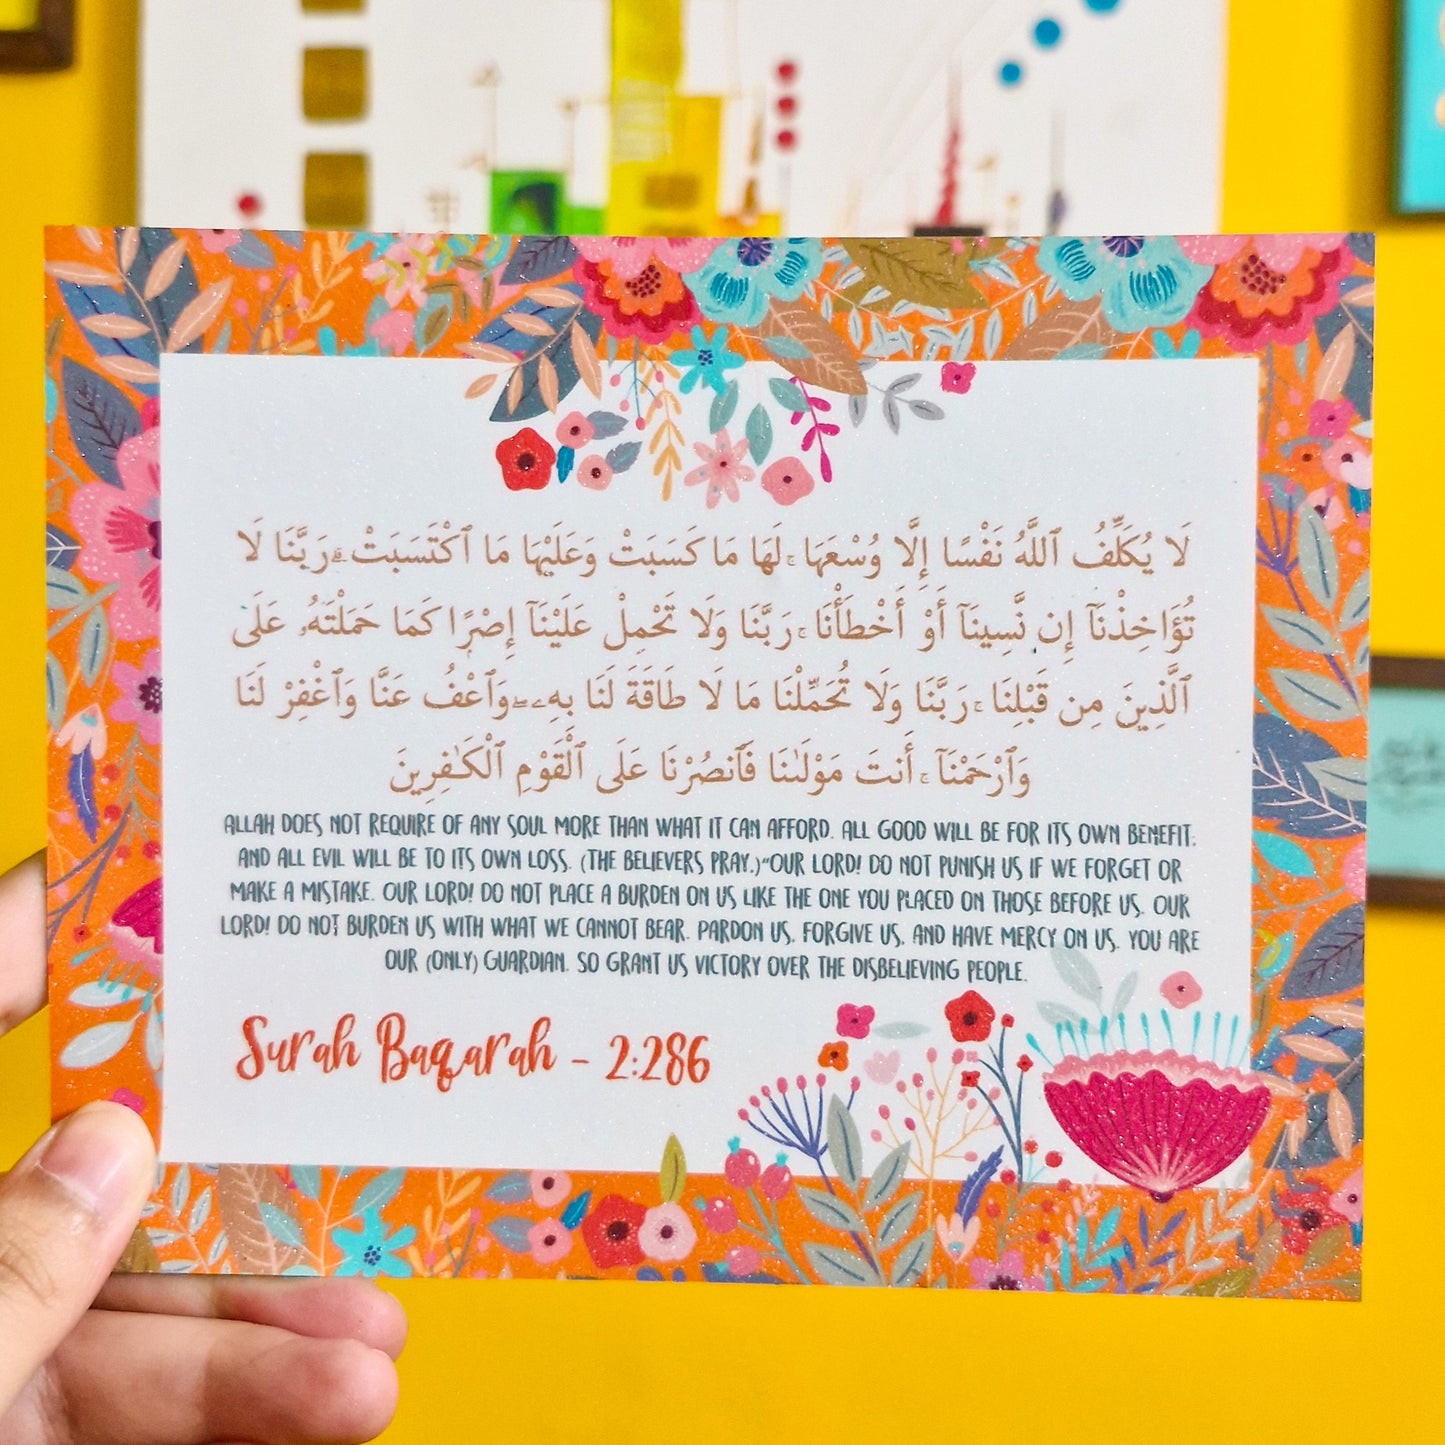 لَا يُكَلِّفُ ٱللَّهُ نَفْسًا إِلَّا وُسْعَهَا ۚ لَهَا مَا كَسَبَتْ وَعَلَيْهَا مَا ٱكْتَسَبَتْ ۗ رَبَّنَا لَا
تُؤَاخِذْنَآ إِن نَّسِينَآ أَوْ أَخْطَأْنَا ۚ رَبَّنَا وَلَا تَحْمِلْ عَلَيْنَآ إِصْرًا كَمَا حَمَلْتَهُۥ عَلَى
ٱلَّذِينَ مِن قَبْلِنَا ۚ رَبَّنَا وَلَا تُحَمِّلْنَا مَا لَا طَاقَةَ لَنَا بِهِۦ ۖ وَٱعْفُ عَنَّا وَٱغْفِرْ لَنَا
وَٱرْحَمْنَآ ۚ أَنتَ مَوْلَىٰنَا فَٱنصُرْنَا عَلَى ٱلْقَوْمِ ٱلْكَـٰفِرِينَ
ALLAH DOES NOT REQUIRE OF ANY SOUL MORE THAN WHAT IT CAN AFFORD. ALL GOOD WILL BE FOR ITS OWN BENEFIT,
AND ALL EVIL WILL BE TO ITS OWN LOSS. (THE BELIEVERS PRAY,)“OUR LORD! DO NOT PUNISH US IF WE FORGET OR
MAKE A MISTAKE. OUR LORD! DO NOT PLACE A BURDEN ON US LIKE THE ONE YOU PLACED ON THOSE BEFORE US. OUR
LORD! DO NOT BURDEN US WITH WHAT WE CANNOT BEAR. PARDON US, FORGIVE US, AND HAVE MERCY ON US. YOU ARE
OUR (ONLY) GUARDIAN. SO GRANT US VICTORY OVER THE DISBELIEVING PEOPLE.
Surah Baqarah - 2:286